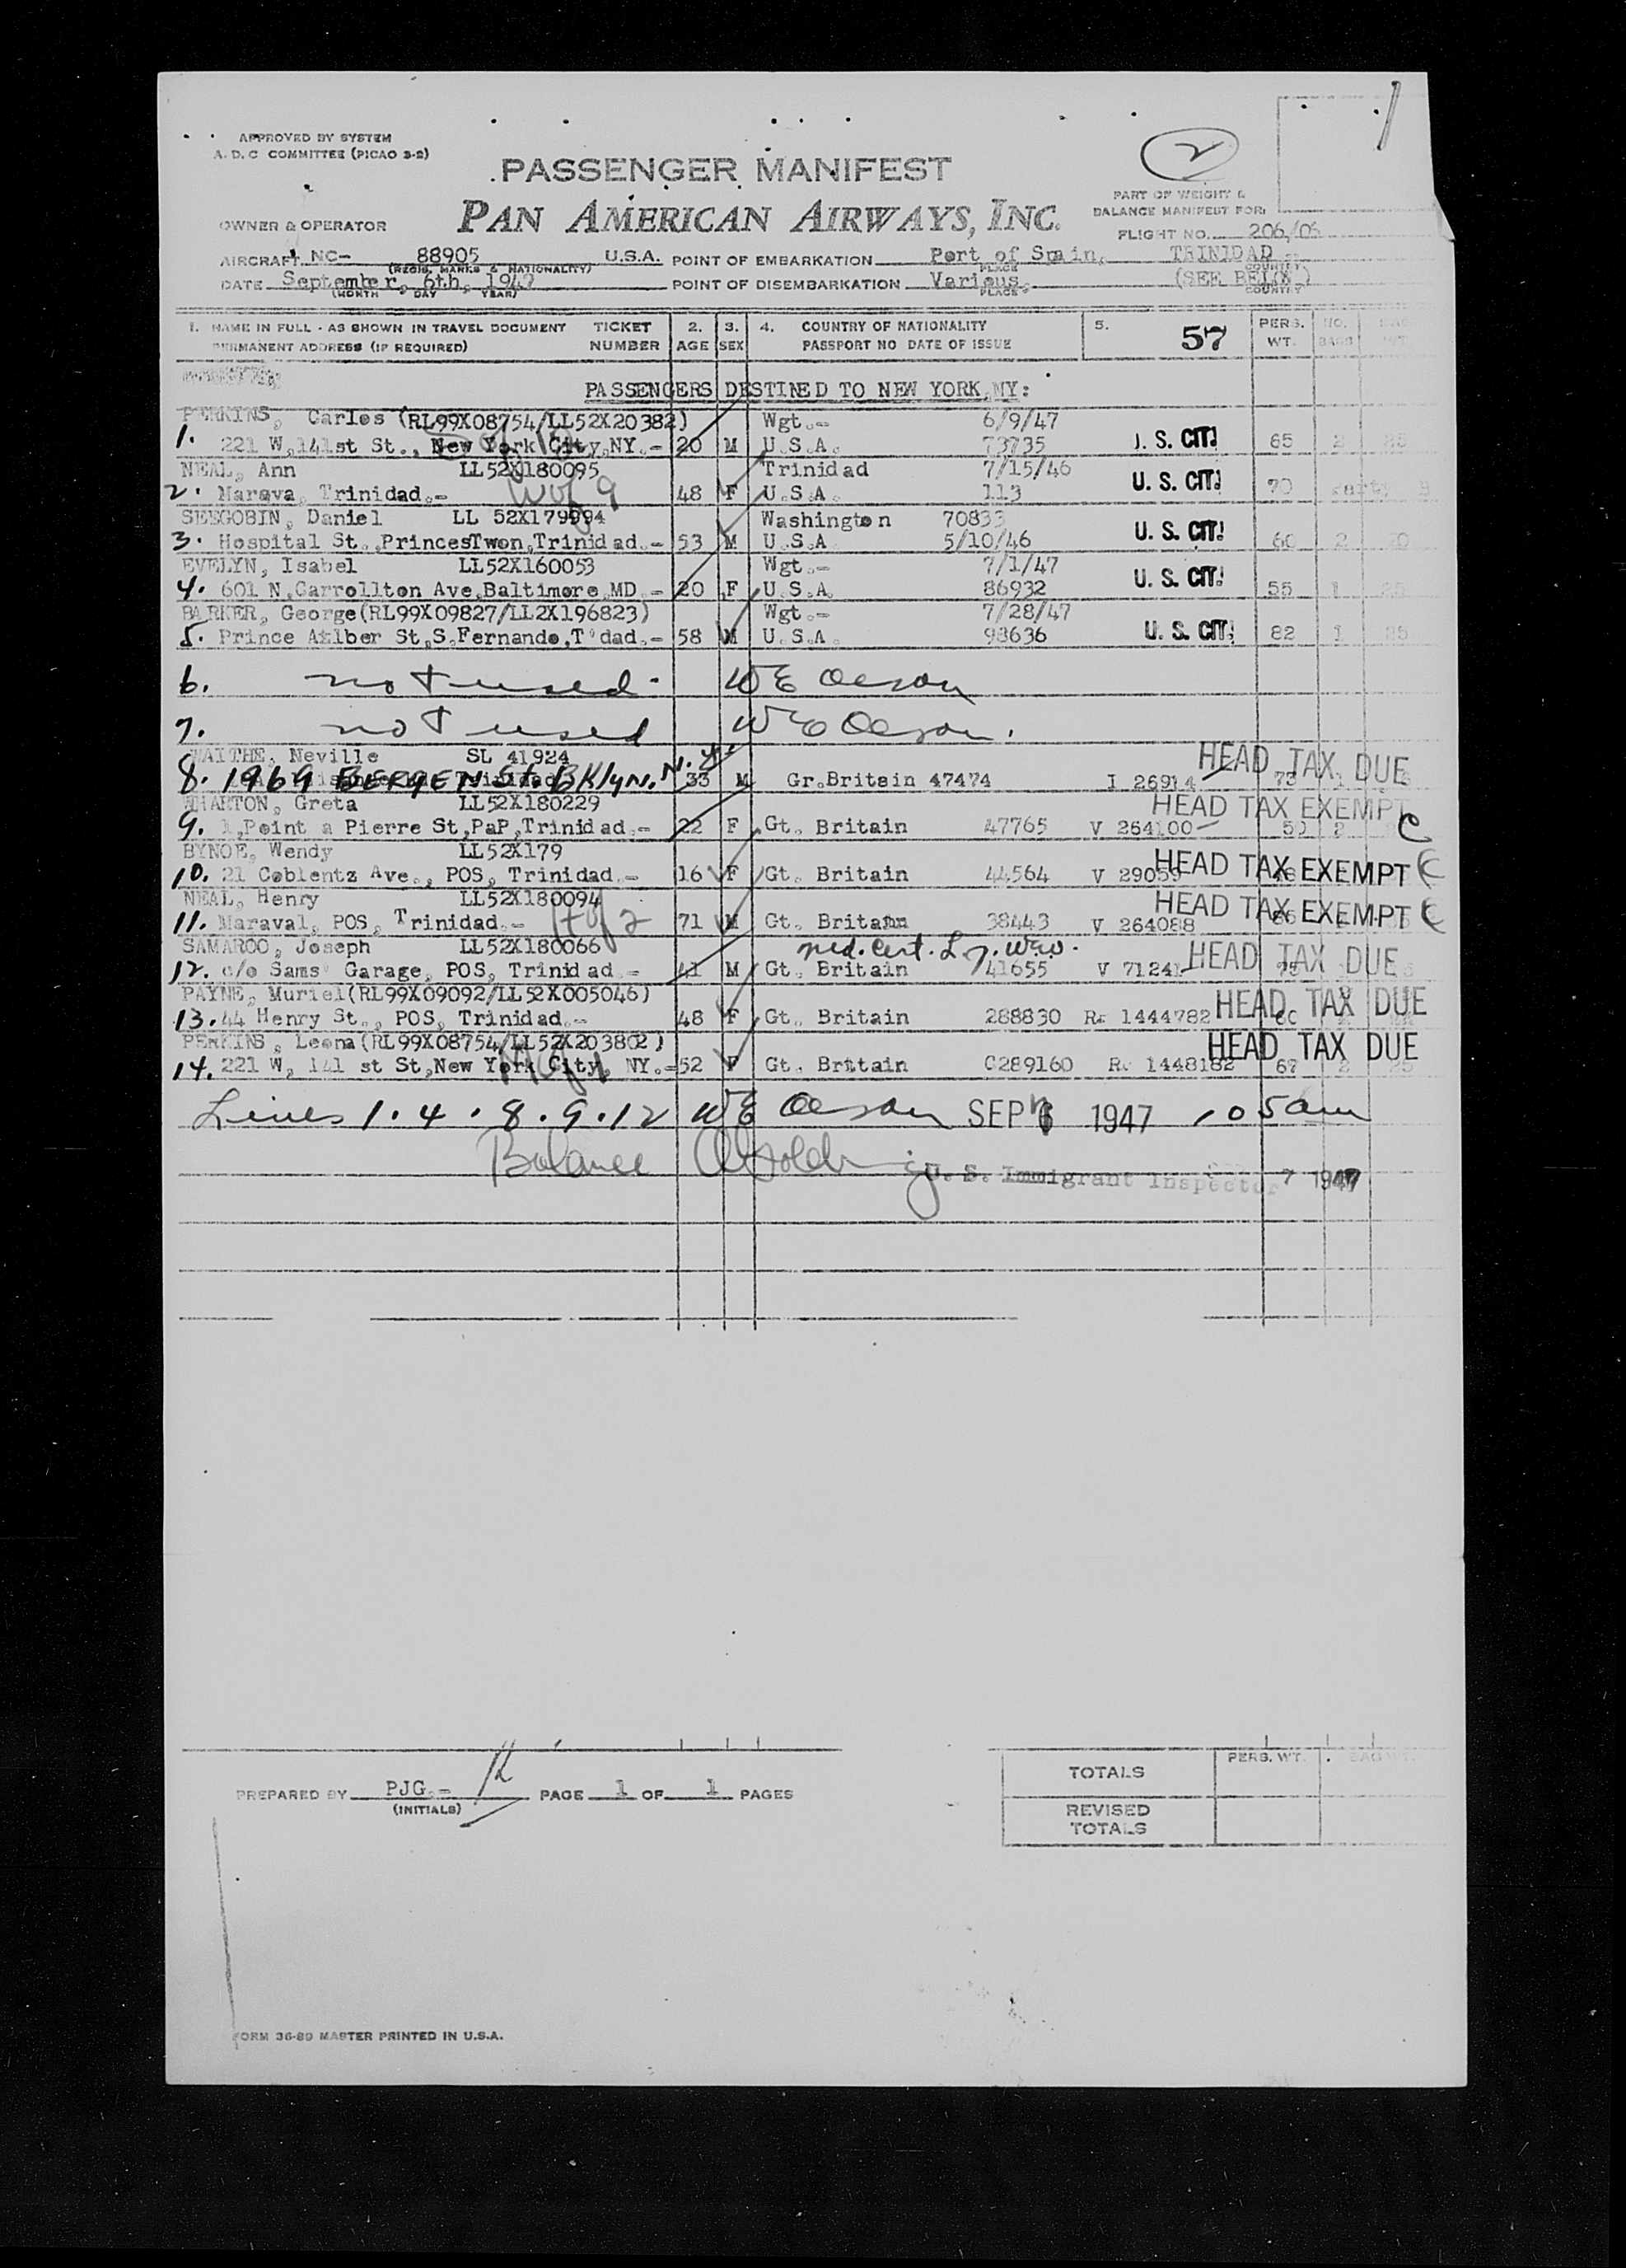 APPROVED BY SYSTEM
A. D. C COMMITTEE (PICAO 3-2)
2
PASSENGER MANIFEST
PAN AMERICAN AIRWAYS, INC.
PART OF WEIGHT &
BALANCE MANIFEST FOR:
FLIGHT NO. 206/05
OWNER & OPERATOR
AIRCRAFT NC- 88905 U.S.A. POINT OF EMBARKATION Port of Spain, TRINIDAD
(REGIS. MARKS & NATIONALITY) PLACE COUNTRY
DATE September, 6th, 1947 POINT OF DISEMBARKATION Various (SEE BELOW)
(MONTH DAY YEAR) PLACE COUNTRY
1. NAME IN FULL - AS SHOWN IN TRAVEL DOCUMENT TICKET 2. 3. 4. COUNTRY OF NATIONALITY 5. 57 PERS. NO.
PERMANENT ADDRESS (IF REQUIRED) NUMBER AGE SEX PASSPORT NO DATE OF ISSUE WT. BAGS
PASSENGERS DESTINED TO NEW YORK, NY:
PERKINS, Carlos (RL99X08754/LL52X20382) Wgt.- 6/9/47
1. 221 W,141st St., New York City,NY.- 20 M U.S.A. 73735 U. S. CIT. 65 2 25
NEAL, Ann LL52X180095 Trinidad 7/15/46
2. Marava, Trinidad.- 48 F U.S.A. 113 U. S. CIT. 70
SEEGOBIN, Daniel LL 52X179994 Washington 70833
3. Hospital St.,PrincesTwon,Trinidad.- 53 M U.S.A 5/10/46 U. S. CIT. 60 2
EVELYN, Isabel LL52X160053 Wgt.- 7/1/47
4. 601 N,Carrollton Ave,Baltimore,MD.- 20 F U.S.A. 86932 U. S. CIT. 55 1 25
BARKER, George(RL99X09827/LL2X196823) Wgt.- 7/28/47
5. Prince Atlber St,S.Fernando,T'dad.- 58 M U.S.A. 98636 U. S. CIT. 82 1
6. not used. W E Olson
7. not used W E Olson.
WAITHE, Neville SL 41924
8. 1969 BERGEN ST. BKlyN. N.Y. 33 M Gr.Britain 47474 I 26914 HEAD TAX DUE
WHARTON, Greta LL52X180229 HEAD TAX EXEMPT C
9. 1,Point a Pierre St,PaP,Trinidad.- 22 F Gt. Britain 47765 V 264100 50 2
BYNOE, Wendy LL52X179
10. 21 Coblentz Ave., POS, Trinidad.- 16 F Gt. Britain 44564 V 29059 HEAD TAX EXEMPT C
NEAL, Henry LL52X180094 HEAD TAX EXEMPT C
11. Maraval, POS, Trinidad.- 71 M Gt. Britain 38443 V 264088
SAMAROO, Joseph LL52X180066 med. cert.
12. c/o Sams' Garage, POS, Trinidad.- 41 M Gt. Britain 41655 V 71241 HEAD TAX DUE
PAYNE, Muriel(RL99X09092/LL52X005046)
13. 44 Henry St., POS, Trinidad.- 48 F Gt. Britain 288830 Rr 1444782 HEAD TAX DUE
PERKINS, Leona(RL99X08754/LL52X203802)
14. 221 W, 141 st St,New York City, NY.- 52 F Gt. Brttain C289160 1448182 HEAD TAX DUE 67 2 25
Lines 1. 4. 8. 9. 12 W E Olson SEP 6 1947 105am
Balance
U. S. Immigrant Inspector 7 1947
PREPARED BY PJG.- PAGE 1 OF 1 PAGES
(INITIALS)
PERS. WT.
TOTALS
REVISED
TOTALS
FORM 36-89 MASTER PRINTED IN U.S.A.